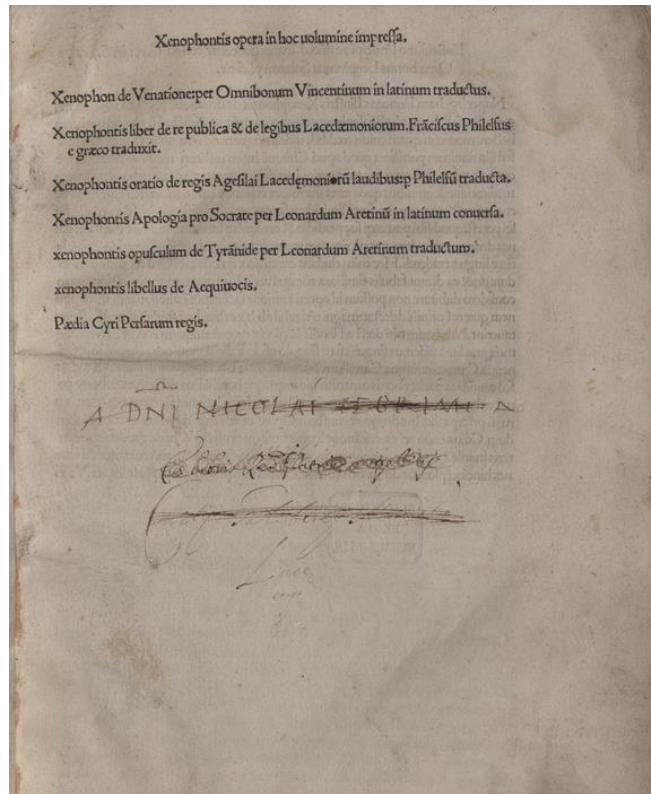 Xenophontis opera in hoc uolumine impreſſa.
Xenophon de Venatione:per Omnibonum Vincentinum in latinum traductus.
Xenophontis liber de re publica & de legibus Lacedæmoniorum.Frãciſcus Philelfus
e græco traduxit.
Xenophontis oratio de regis Ageſilai Lacedęmoniorũ laudibus:ꝑ Philelfũ traducta.
Xenophontis Apologia pro Socrate per Leonardum Aretinũ in latinum conuerſa.
xenophontis opuſculum de Tyrãnide per Leonardum Aretinum traductum.
xenophontis libellus de Aequiuocis.
Pædia Cyri Perſarum regis.
A DÑI NICOLAI